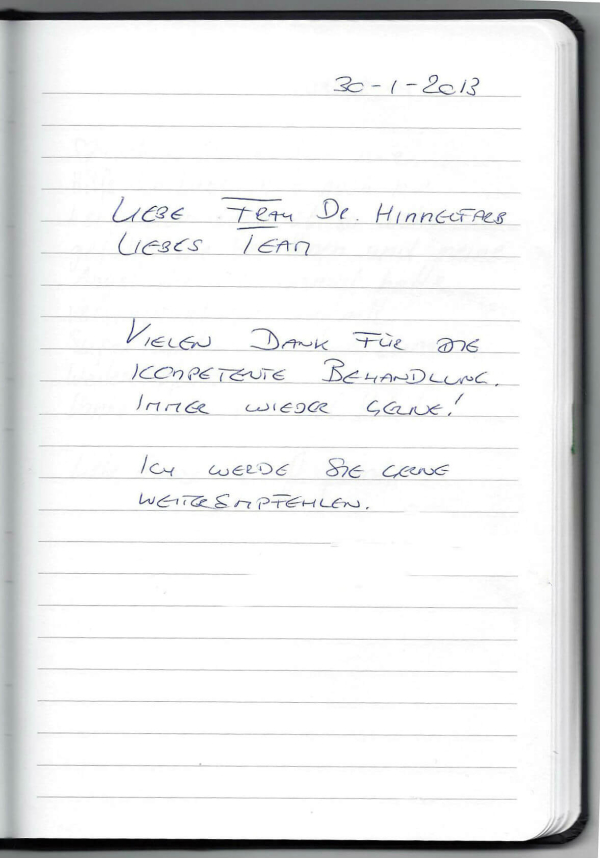 30-1-2013
LIEBE FRAU Dr. HIMMELFARB
LIEBES TEAM
VIELEN DANK FÜR DIE
KOMPETENTE BEHANDLUNG.
IMMER WIEDER GERNE!
ICH WERDE SIE GERNE
WEITEREMPFEHLEN.